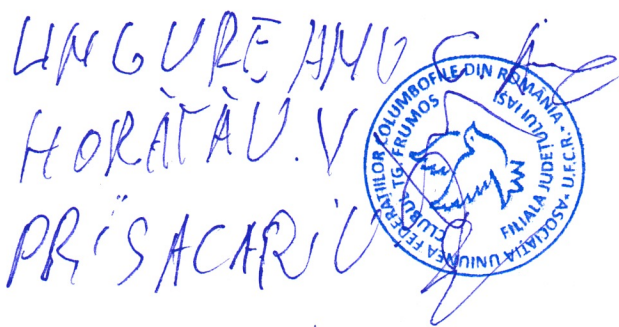 UNGUREANU C
HORĂTĂU. V
PRISACARIU
ASOCIAȚIA UNIUNEA FEDERAȚIILOR COLUMBOFILE DIN ROMÂNIA - U.F.C.R. -
FILIALA JUDEȚULUI IAȘI
CLUBUL TG. FRUMOS